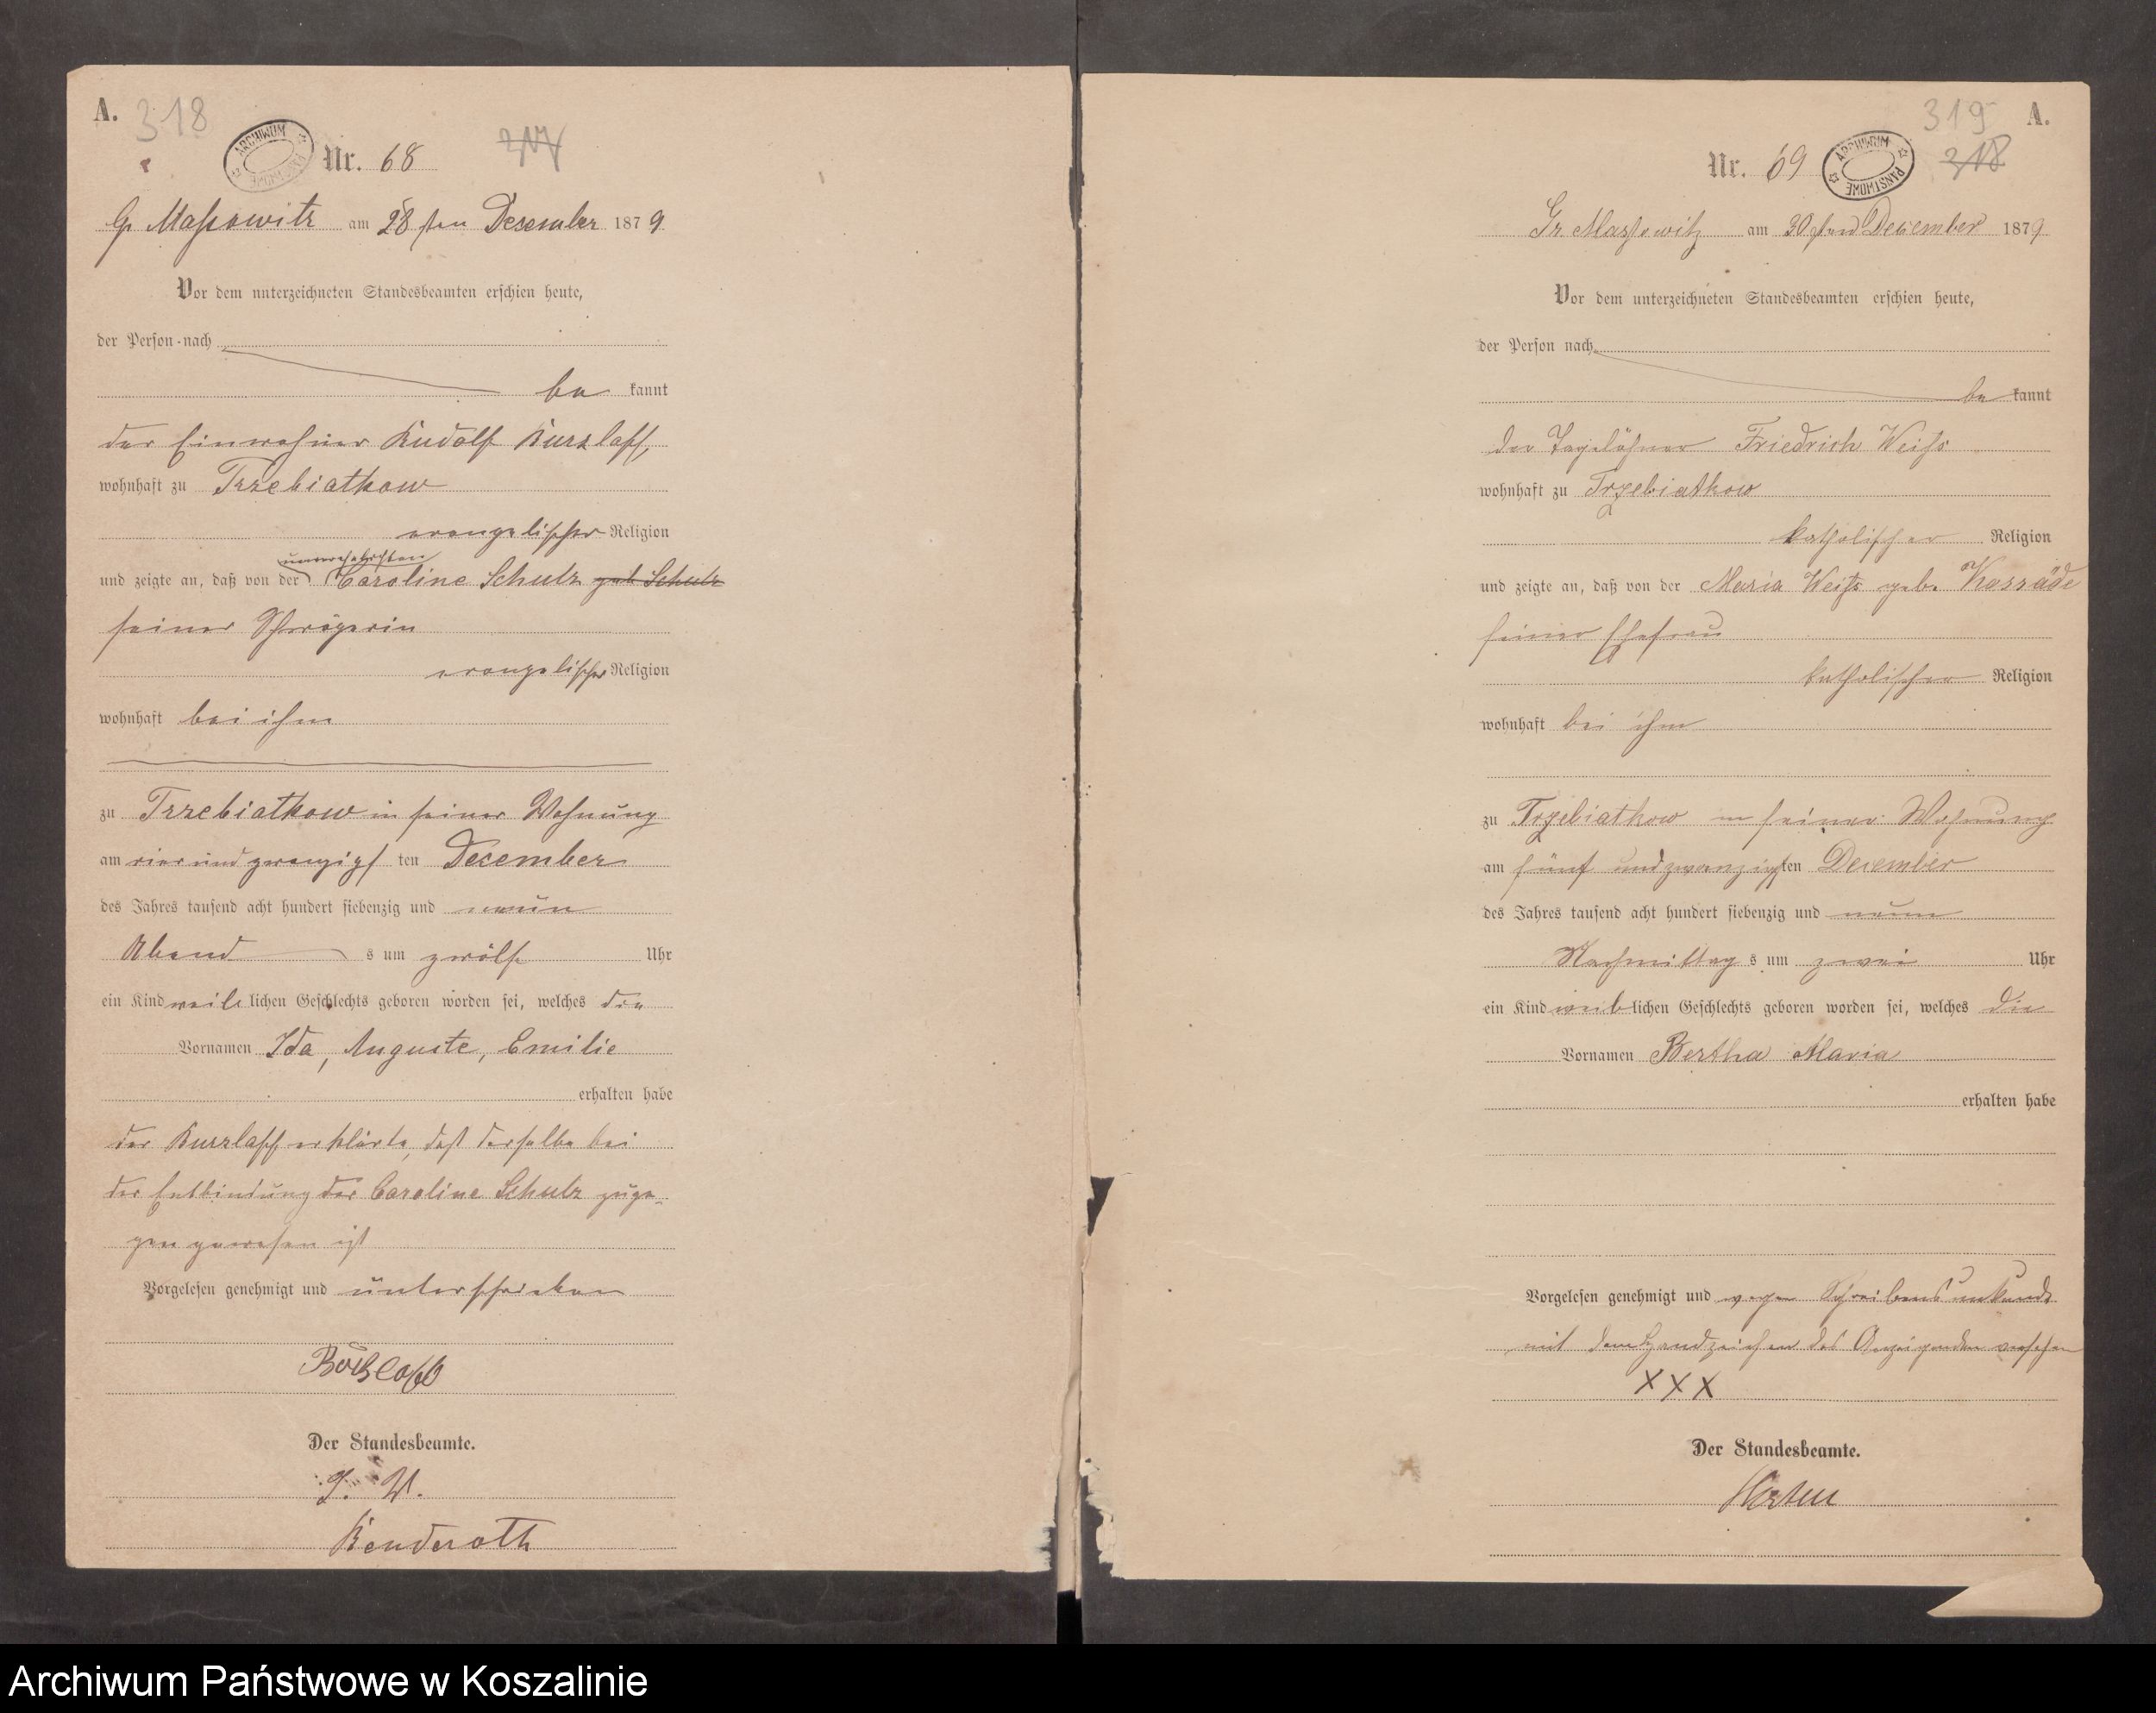 A.
318
ARCHIWUM PAŃSTWOWE
Nr. 68
317
Gr Massowitz am 28 sten December 1879
Vor dem unterzeichneten Standesbeamten erschien heute,
der Person nach
be kannt
der Einwohner Rudolf Kurzlaff,
wohnhaft zu Trzebiatkow
evangelischer Religion
unverehelichten
und zeigte an, daß von der Caroline Schulz geb Schulz
seiner Schwägerin
evangelischer Religion
wohnhaft bei ihm
zu Trzebiatkow in seiner Wohnung
am vier und zwanzigs ten December
des Jahres tausend acht hundert siebenzig und neun
Abend s um zwölf Uhr
ein Kind weib lichen Geschlechts geboren worden sei, welches die
Vornamen Ida, Auguste, Emilie
erhalten habe
der Kurzlaff erklärte, daß derselbe bei
der Entbindung der Caroline Schulz zuge-
gen gewesen ist
Vorgelesen genehmigt und unterschrieben
Der Standesbeamte.
J. V.
Benderoth
319
A.
Nr. 69
ARCHIWUM PAŃSTWOWE
318
Gr. Massowitz am 30 sten December 1879
Vor dem unterzeichneten Standesbeamten erschien heute,
der Person nach
be kannt
der Tagelöhner Friedrich Weiss
wohnhaft zu Trzebiatkow
katholischer Religion
und zeigte an, daß von der Maria Weiss geb.
seiner Ehefrau
katholischer Religion
wohnhaft bei ihm
zu Trzebiatkow in seiner Wohnung
am fünf und zwanzigsten December
des Jahres tausend acht hundert siebenzig und neun
Nachmittag s um zwei Uhr
ein Kind weiblichen Geschlechts geboren worden sei, welches die
Vornamen Bertha Maria
erhalten habe
Vorgelesen genehmigt und wegen Schreibensunkunde
mit dem Handzeichen des Anzeigenden versehen
XXX
Der Standesbeamte.
Archiwum Państwowe w Koszalinie